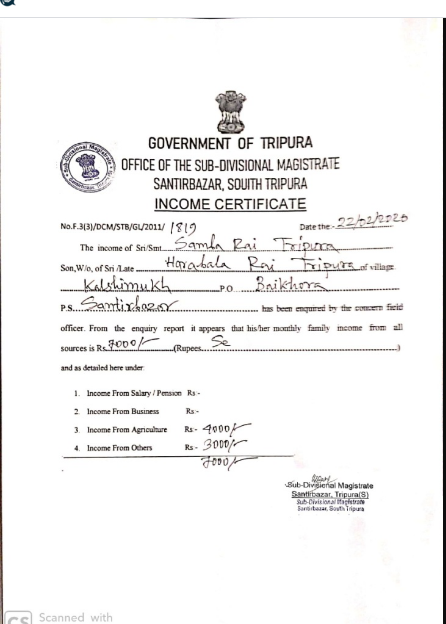 GOVERNMENT OF TRIPURA
OFFICE OF THE SUB-DIVISIONAL MAGISTRATE
SANTIRBAZAR, SOUITH TRIPURA
INCOME CERTIFICATE
No.F.3(3)/DCM/STB/GL/2011/ 1819 Date the:- 22/02/2025
The income of Sri/Smt. Samla Rai Tripura
Son,W/o, of Sri /Late Harabala Rai Tripura of village
Kalshimukh P.O Baikhora
P.S. Santirbazar has been enquired by the concern field
officer. From the enquiry report it appears that his/her monthly family income from all
sources is Rs. 7000/- (Rupees. Se )
and as detailed here under
1. Income From Salary / Pension Rs:-
2. Income From Business Rs:-
3. Income From Agriculture Rs:- 4000/-
4. Income From Others Rs:- 3000/-
7000/-
Sub-Divisional Magistrate
Santirbazar, Tripura(S)
Sub-Divisional Magistrate
Santirbazar, South Tripura
CS Scanned with